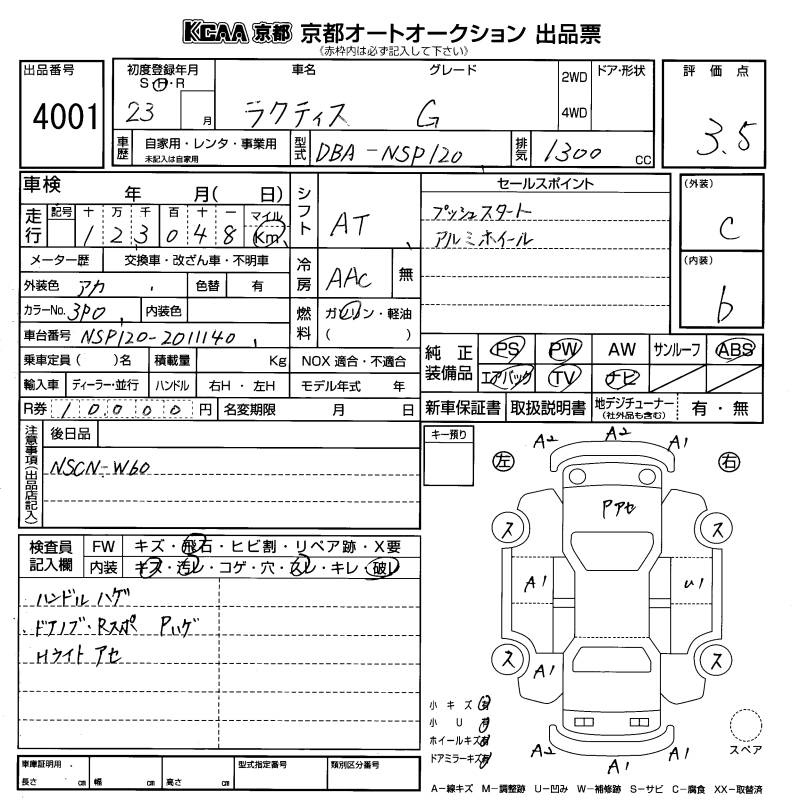 KCAA 京都 京都オートオークション 出品票
《赤枠内は必ず記入して下さい》
出品番号
4001
初度登録年月
S・H・R
23 月
車名
ラクティス
グレード
G
2WD
4WD
ドア・形状
評価点
3.5
車歴
自家用・レンタ・事業用
未記入は自家用
型式
DBA-NSP120
排気
1300 CC
車検 年 月( 日)
走行
記号 十 万 千 百 十 一 マイル
1 2 3 0 4 8 Km
メーター歴 交換車・改ざん車・不明車
外装色 アカ 色替 有
カラーNo. 3P0 内装色
車台番号 NSP120-2011140
乗車定員 ( )名 積載量 Kg
輸入車 ディーラー・並行 ハンドル 右H・左H
R券 10000 円 名変期限 月 日
シフト
AT
冷房
AAC 無
燃料
ガソリン・軽油
( )
NOX 適合・不適合
モデル年式 年
セールスポイント
プッシュスタート
アルミホイール
(外装)
C
(内装)
b
純正装備品
PS PW AW サンルーフ ABS
エアバック TV ナビ
新車保証書 取扱説明書 地デジチューナー
(社外品も含む)
有・無
注意事項(出品店記入)
後日品
NSCN-W60
キー預り
検査員記入欄
FW キズ・飛石・ヒビ割・リペア跡・X要
内装 キズ・汚レ・コゲ・穴・スレ・キレ・破レ
ハンドル ハゲ
・ドアノブ・Rスポ Pハゲ
Hライト アセ
A2 A2 A1
左 右
Pアセ
ス ス
A1 U1
ス ス
A1
A2 A1 A1
小キズ
小U
ホイールキズ
ドアミラーキズ
スペア
A-線キズ M-調整跡 U-凹み W-補修跡 S-サビ C-腐食 XX-取替済
車庫証明用
長さ cm 幅 cm 高さ cm
型式指定番号
類別区分番号